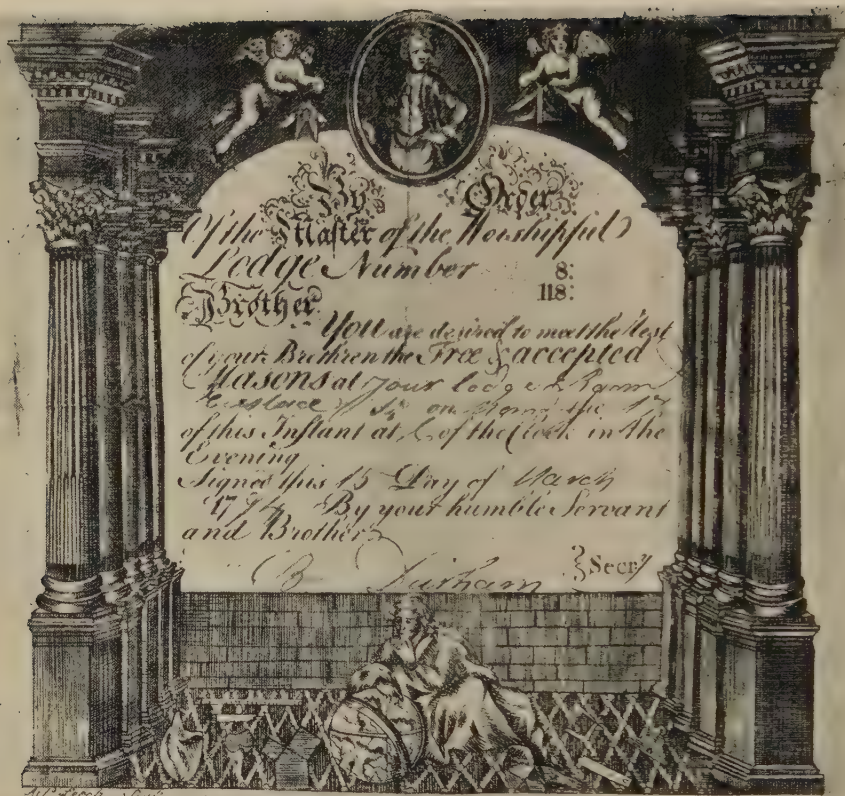 By Order
Of the Master of the Worshipful
Lodge Number 8:
118:
Brother
You are desired to meet the Rest
of your Brethren the Free & accepted
Masons at your lodge Room
on the 17
of this Instant at of the Clock in the
Evening
Signed this 15 Day of March
By your humble Servant
and Brother
B Fairham Secry